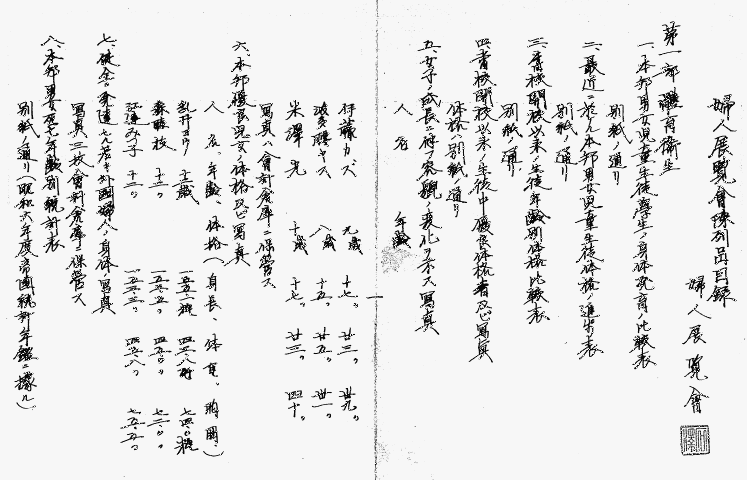 婦人展覧會陳列品目録
婦人展覧會
第一部 體育衛生
一、本邦男女児童生徒學生ノ身体発育ノ比較表
別紙ノ通リ
二、最近ニ於ル本邦男女児童生徒体格ノ進歩表
別紙ノ通リ
三、本校開校以来ノ生徒年齢別体格比較表
別紙ノ通リ
四、本校開校以来ノ生徒中優良体格者及ビ写真
体格ハ別紙ノ通リ
五、女子ノ成長ニ伴フ容貌ノ変化ヲ示ス写真
人名 年齢
伊藤カズ 九歳 十七〃 廿三〃 卅九〃
波多腰ヤス 八歳 十五〃 廿五〃 卅一〃
米澤光 十歳 十七〃 廿三〃 四十〃
写真ハ會計倉庫ニ保管ス
六、本邦優良児女ノ体格及ビ写真
人名、年齢、体格(身長、体重、胸囲、)
十三〃 一五五、五〃 四五、五〃 七二、〇〃
十三〃 一五三、〃 四五、八〃 七五、五〃
写真三枚會計倉庫ニ保管ス
八、本邦男女死亡年齢別統計表
別紙ノ通リ(昭和六年度帝國統計年鑑ニ據ル)